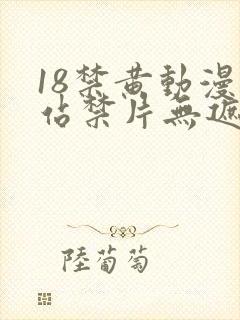 18禁黄動漫
佔禁片無遮
陸葡萄